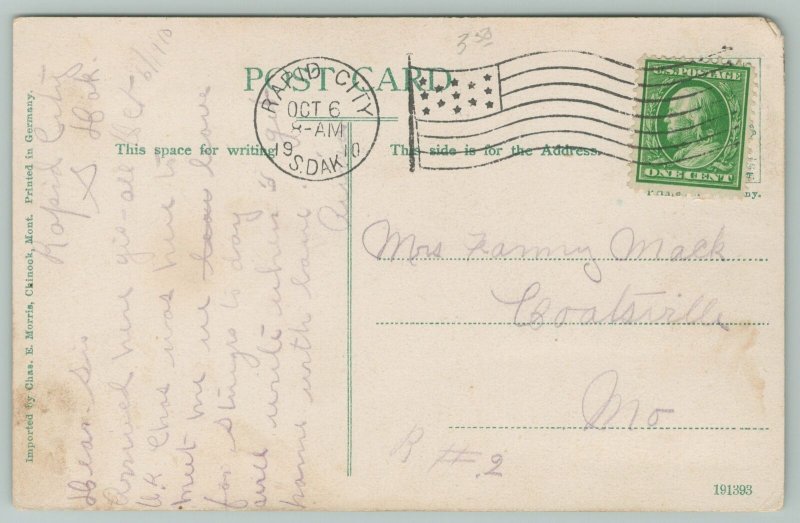 POST CARD
RAPID CITY
OCT 6
8-AM
1910
S.DAK.
U.S. POSTAGE
ONE CENT
This space for writing
This side is for the Address.
Mrs Fanny Mack
Coatsville
Mo
R #.2
191393
Imported by Chas. E. Morris, Chinook, Mont. Printed in Germany.
Rapid City
S Dak.
Oct 6/10
Dear Sis
Arrived here
O.K. Chas was here to
meet me we leave
for Sturgis to day
will write when I
home with love